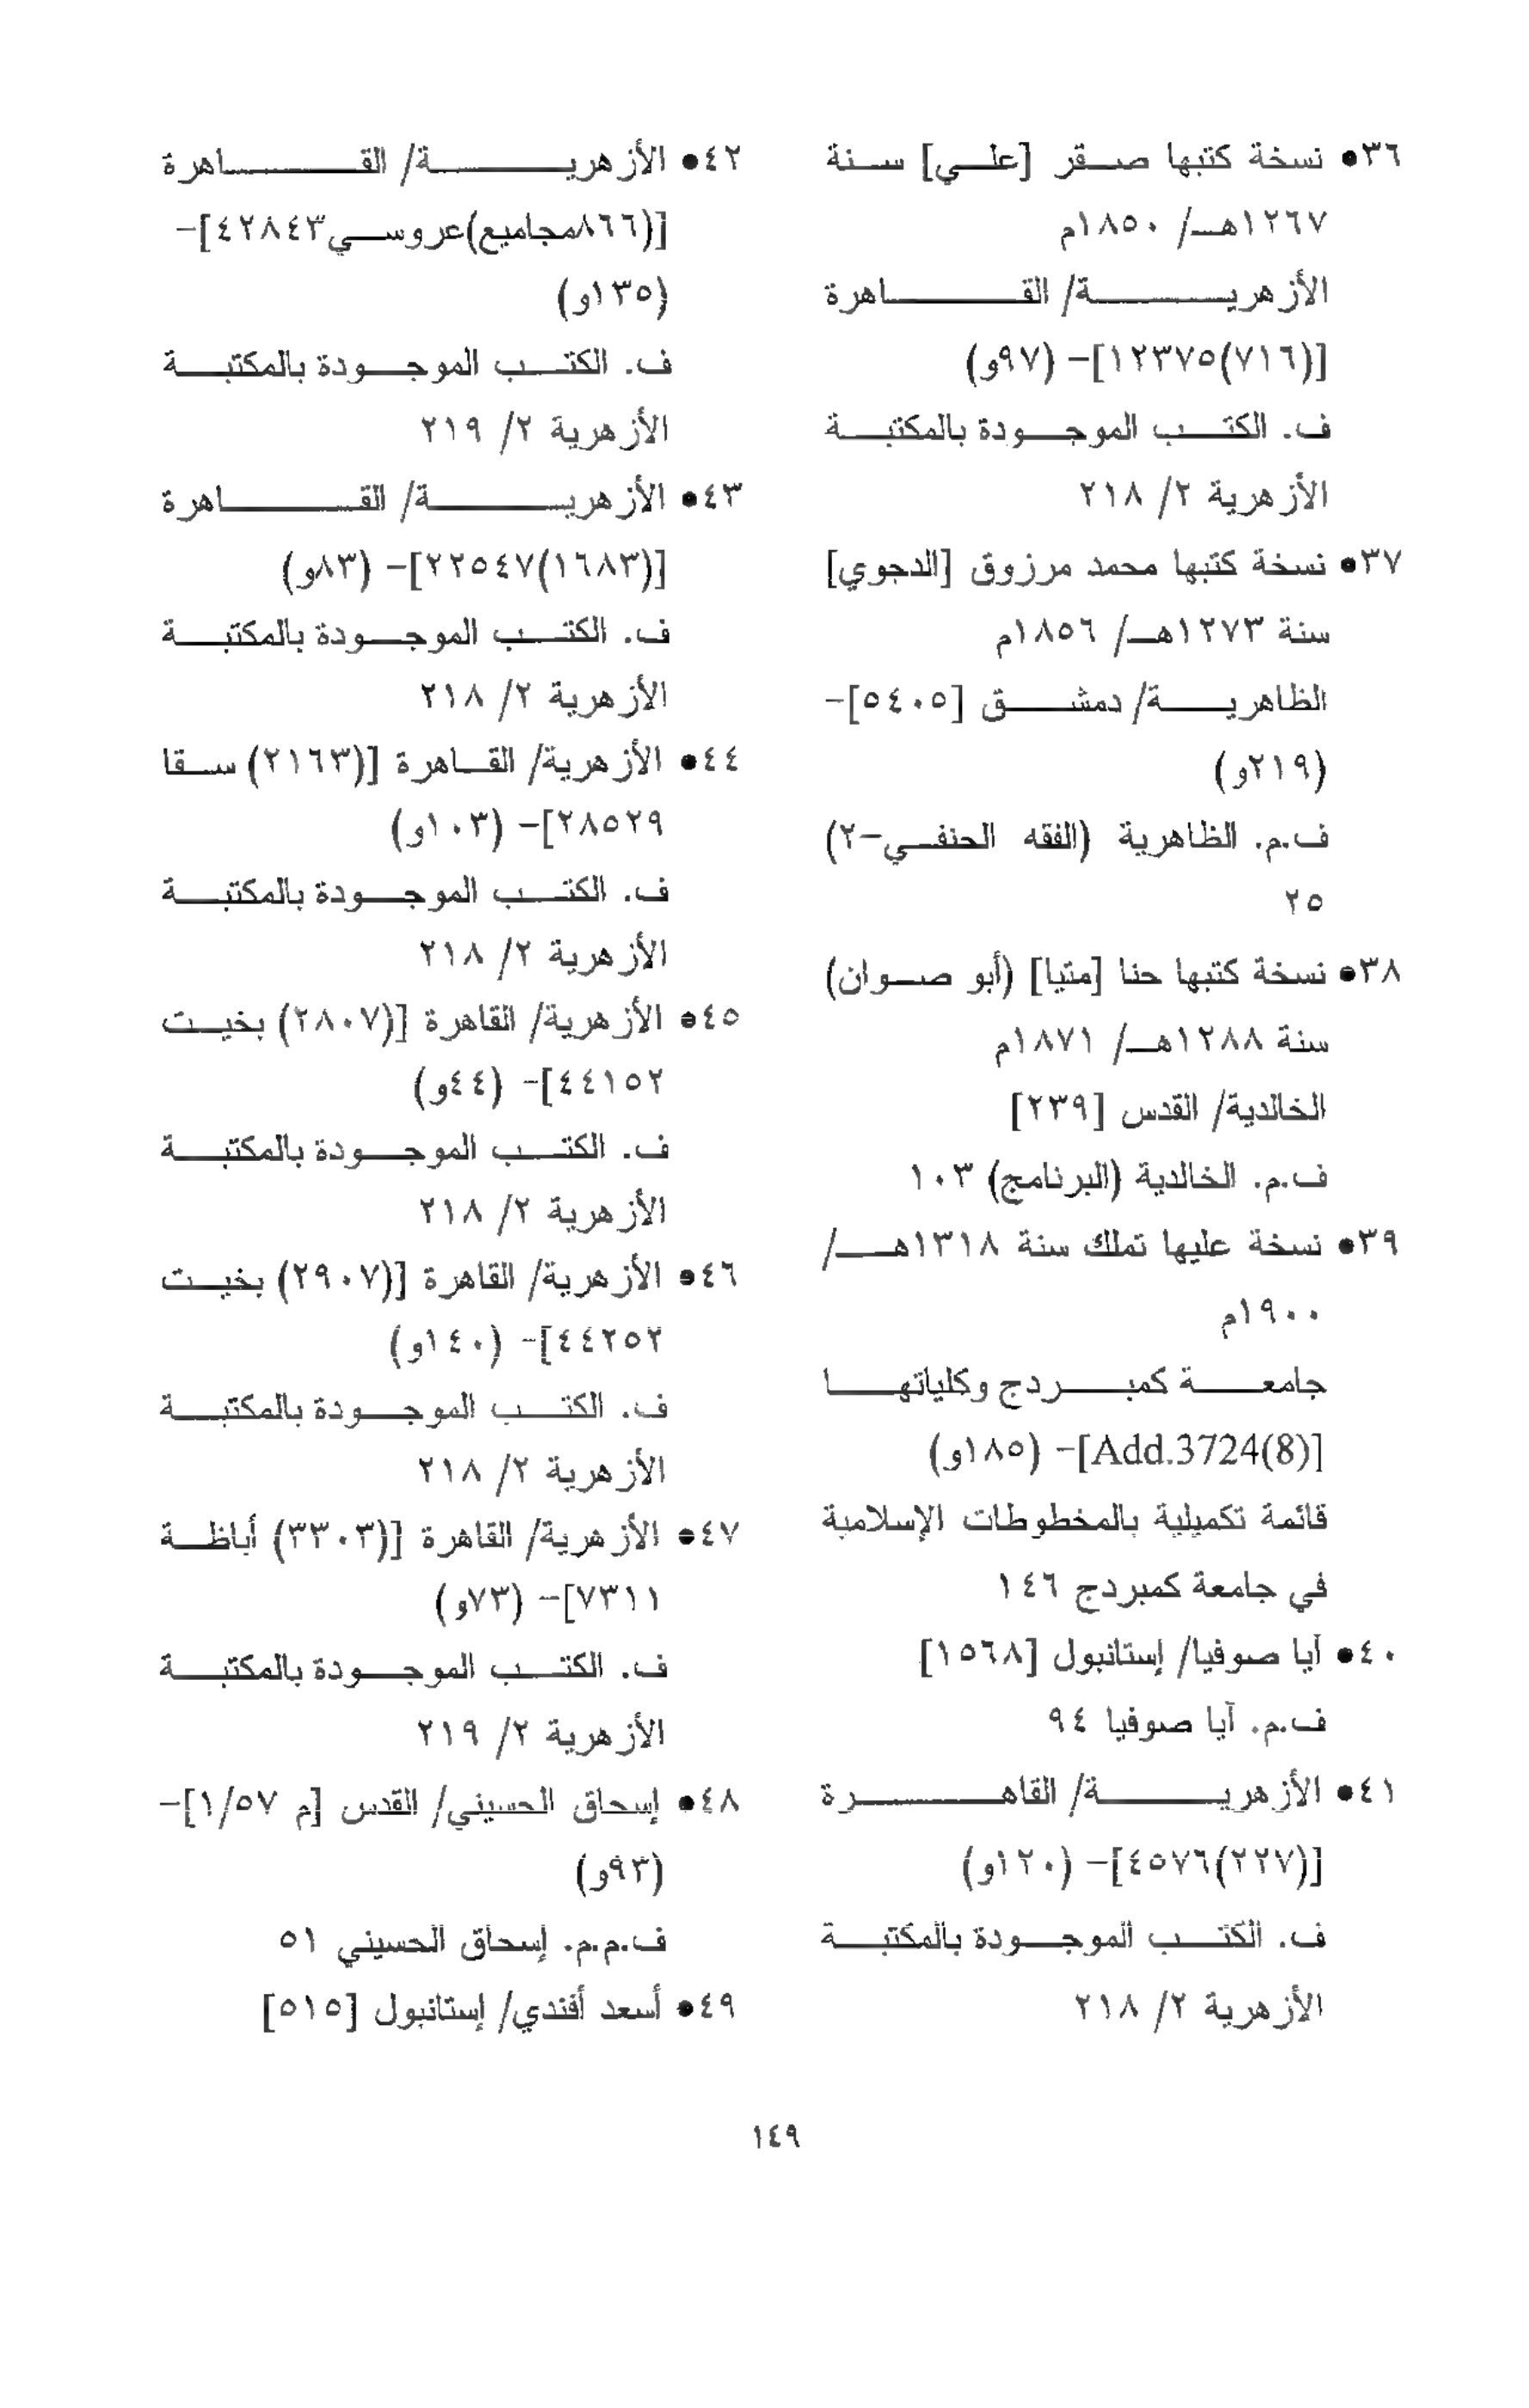 ٣٦● نسخة كتبها صقر [علي] سنة
١٢٦٧هـ/ ١٨٥٠م
الأزهرية/ القاهرة
[(٧١٦)١٢٣٧٥]- (٩٧و)
ف. الكتب الموجودة بالمكتبة
الأزهرية ٢/ ٢١٨
٣٧● نسخة كتبها محمد مرزوق [الدجوي]
سنة ١٢٧٣هـ/ ١٨٥٦م
الظاهرية/ دمشق [٥٤٠٥]-
(٢١٩و)
ف.م. الظاهرية (الفقه الحنفي-٢)
٢٥
٣٨● نسخة كتبها حنا [متيا] (أبو صوان)
سنة ١٢٨٨هـ/ ١٨٧١م
الخالدية/ القدس [٢٣٩]
ف.م. الخالدية (البرنامج) ١٠٣
٣٩● نسخة عليها تملك سنة ١٣١٨هـ/
١٩٠٠م
جامعة كمبردج وكلياتها
[Add.3724(8)]- (١٨٥و)
قائمة تكميلية بالمخطوطات الإسلامية
في جامعة كمبردج ١٤٦
٤٠● آيا صوفيا/ إستانبول [١٥٦٨]
ف.م. آيا صوفيا ٩٤
٤١● الأزهرية/ القاهرة
[(٢٢٧)٤٥٧٦]- (١٢٠و)
ف. الكتب الموجودة بالمكتبة
الأزهرية ٢/ ٢١٨
٤٢● الأزهرية/ القاهرة
[(٨٦٦مجاميع)عروسي٤٢٨٤٣]-
(١٣٥و)
ف. الكتب الموجودة بالمكتبة
الأزهرية ٢/ ٢١٩
٤٣● الأزهرية/ القاهرة
[(١٦٨٣)٢٢٥٤٧]- (٨٣و)
ف. الكتب الموجودة بالمكتبة
الأزهرية ٢/ ٢١٨
٤٤● الأزهرية/ القاهرة [(٢١٦٣) سقا
٢٨٥٢٩]- (١٠٣و)
ف. الكتب الموجودة بالمكتبة
الأزهرية ٢/ ٢١٨
٤٥● الأزهرية/ القاهرة [(٢٨٠٧) بخيت
٤٤١٥٢]- (٤٤و)
ف. الكتب الموجودة بالمكتبة
الأزهرية ٢/ ٢١٨
٤٦● الأزهرية/ القاهرة [(٢٩٠٧) بخيت
٤٤٢٥٢]- (١٤٠و)
ف. الكتب الموجودة بالمكتبة
الأزهرية ٢/ ٢١٨
٤٧● الأزهرية/ القاهرة [(٣٣٠٣) أباظة
٧٣١١]- (٧٣و)
ف. الكتب الموجودة بالمكتبة
الأزهرية ٢/ ٢١٩
٤٨● إسحاق الحسيني/ القدس [م ١/٥٧]-
(٩٣و)
ف.م.م. إسحاق الحسيني ٥١
٤٩● أسعد أفندي/ إستانبول [٥١٥]
١٤٩